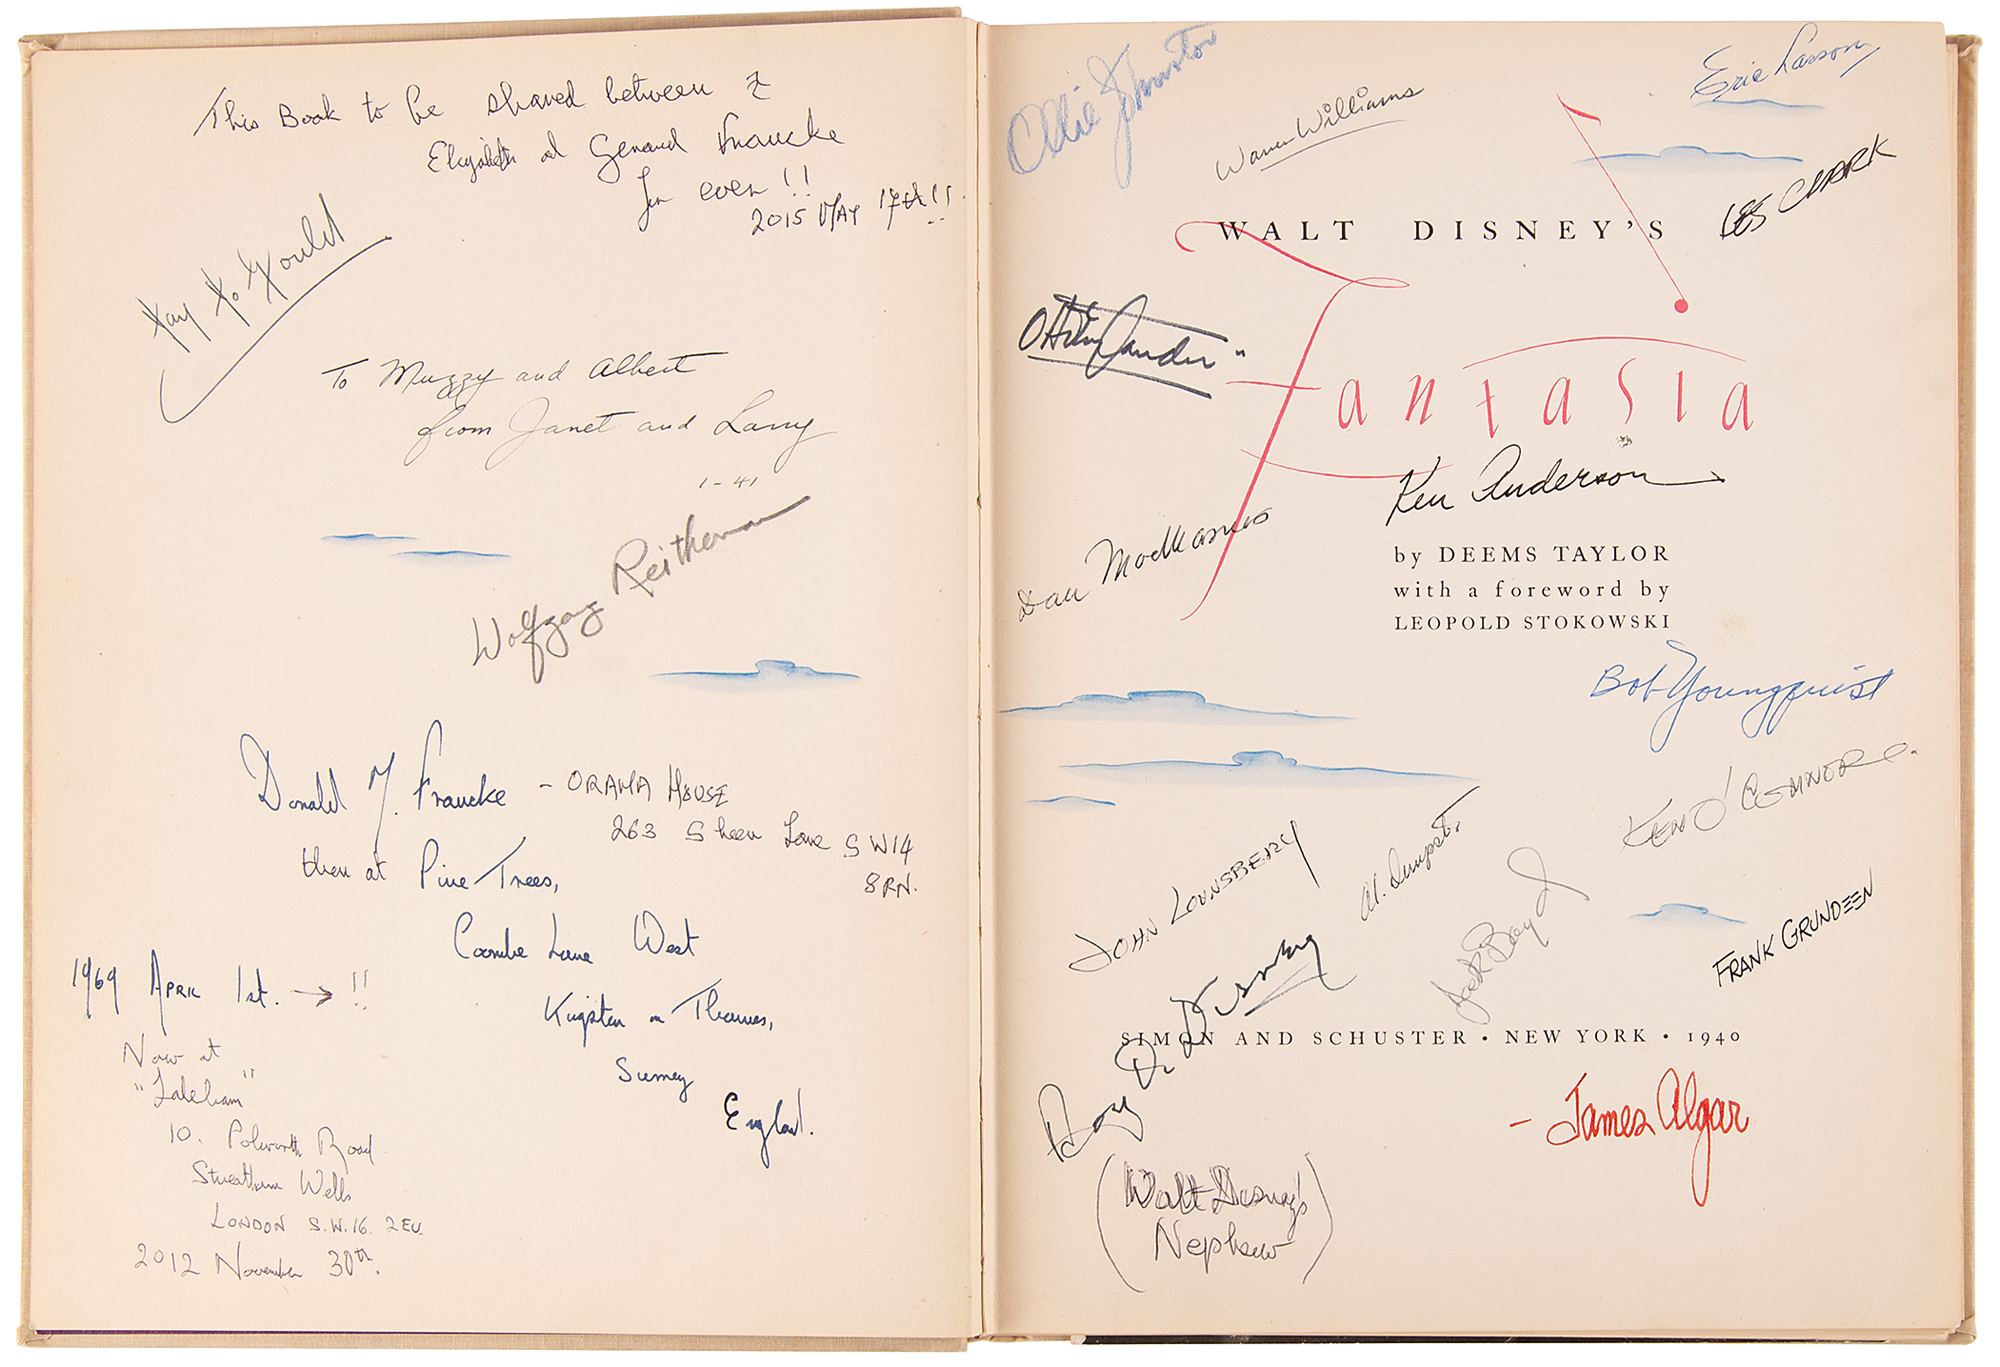 This Book to be shared between
Elizabeth and Gerard Francke
for ever !!
2015 MAY 17th !!
Kay Gould
To Muzzy and Albert
from Janet and Larry
1-41
Wolfgang Reitherman
Donald M. Francke - ORAMA HOUSE
263 Sheen Lane SW14
8RN.
then at Pine Trees,
Coombe Lane West
Kingston on Thames,
Surrey
England.
1969 APRIL 1st. → !!
Now at
"Laleham"
10. Polworth Road
Streatham Wells
LONDON S.W.16. 2EU
2012 November 30th.
Ollie Johnston
Warren Williams
Eric Larson
LES CLARK
WALT DISNEY'S
Fantasia
Ken Anderson
Dan MacManus
by DEEMS TAYLOR
with a foreword by
LEOPOLD STOKOWSKI
Bob Youngquist
KEN O'CONNOR
JOHN LOUNSBERY
Al. Dempster
Jack Boyd
FRANK GRUNDEEN
Roy D. Disney
SIMON AND SCHUSTER • NEW YORK • 1940
- James Algar
(Walt Disney's
Nephew)